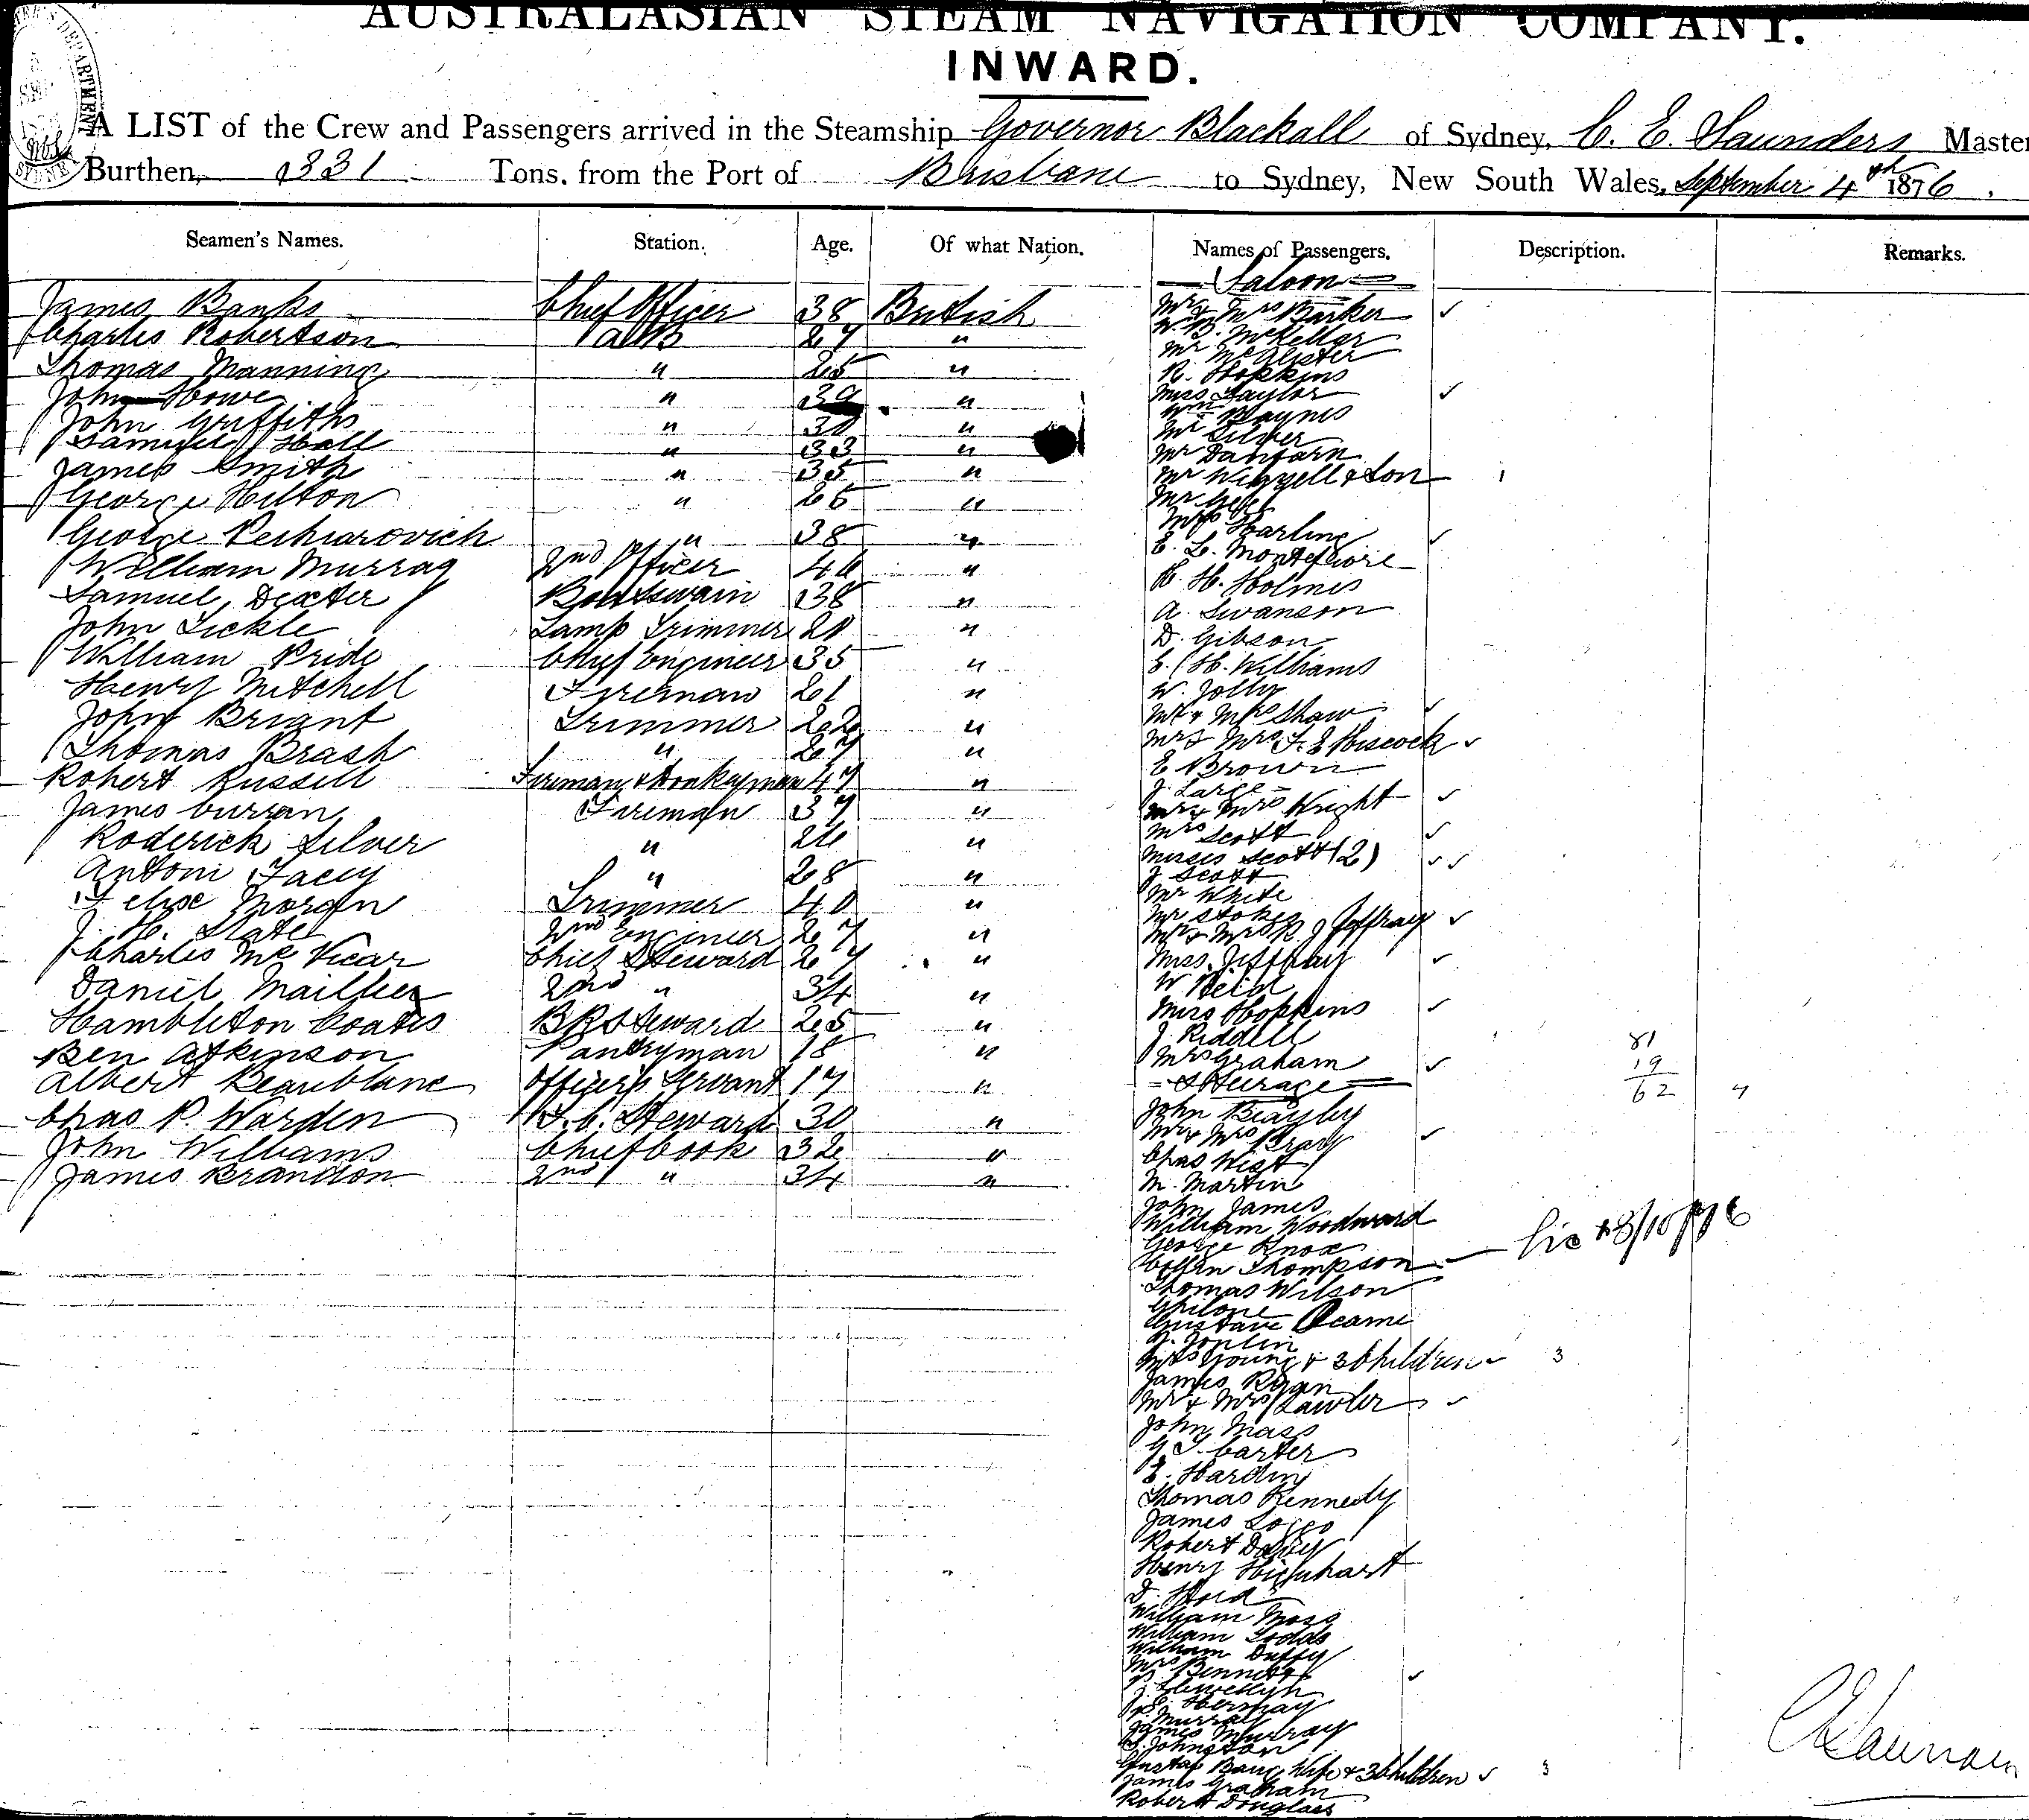 AUSTRALASIAN STEAM NAVIGATION COMPANY.
INWARD.
A LIST of the Crew and Passengers arrived in the Steamship Governor Blackall of Sydney, C. E. Saunders Master
Burthen, 331 Tons. from the Port of Brisbane to Sydney, New South Wales, September 4th 1876.
Seamen's Names. Station. Age. Of what Nation. Names of Passengers. Description. Remarks.
James Banks Chief Officer 38 British
Charles Robertson AB 27 "
Thomas Manning " 25 "
John Howe " 39 "
John Griffiths " 30 "
Samuel Hall " 33 "
James Smith " 35 "
George Hilton " 26 "
George " 38 "
William Murray 2nd Officer 46 "
Samuel Dexter Boatswain 38 "
John Tickle Lamp Trimmer 20 "
William Pride Chief Engineer 35 "
Henry Mitchell Fireman 21 "
John Briant Trimmer 22 "
Thomas Brash " 27 "
Robert Russell Fireman & Donkeyman 47 "
James Curran Fireman 37 "
Roderick Silver " 26 "
Antoni Facey " 28 "
Felipe Morgan Trimmer 40 "
J. H. Slater 2nd Engineer 27 "
Charles McVicar Chief Steward 27 "
Daniel 2nd " 34 "
Hambleton Coates BR Steward 25 "
Ben Atkinson Pantryman 18 "
Albert Beaublanc Officers Servant 17 "
Chas P. Warden F.C. Steward 30 "
John Williams Chief Cook 32 "
James Brandon 2nd " 34 "
Saloon
Mr & Mrs Barker
W. B. McKellar
Mr McAlister
R. Hopkins
Miss Taylor
Wm Maynes
Mr Silver
Mr
Mr & Son
Mr
Mrs Harling
E. L. Montefiore
H. H. Holmes
A. Swanson
D. Gibson
E. H. Williams
W. Jolly
Mr & Mrs Shaw
Mr & Mrs F. E Hiscock
E Brown
J. Large
Mr & Mrs Wright
Mrs Scott
Misses Scott (2)
J Scott
Mr White
Mr Stokes
Mr & Mrs R. J Jeffray
Miss Jeffray
W Reid
Miss Hopkins
J. Riddell
Mrs Graham
Steerage
John Beazley
Mr & Mrs Bray
Chas West
M. Martin
John James
William Woodward
George Knox
Thompson
Thomas Wilson
Gustave
Mrs Young & 3 Children 3
James Ryan
Mr & Mrs Lawler
John Mass
G T. Carter
E. Hardin
Thomas Kennedy
James
Robert Davey
Henry
William Moss
William Dodds
William Duffy
Mrs Bennett
Llewellyn
J. Murray
James Murray
Johnston
Gustav Wife & 3 Children 3
James Graham
Robert Douglass
81
19
62